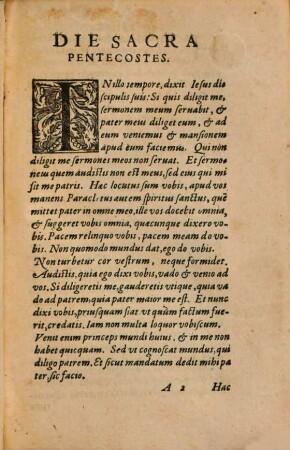 DIE SACRA
PENTECOSTES.
IN illo tempore, dixit Iesus di⸗
scipulis suis: Si quis diligit me,
sermonem meum servabit, &
pater meus diliget eum, & ad
eum veniemus & mansionem
apud eum faciemus. Qui non
diligit me sermones meos non servat. Et sermo⸗
nem quem audistis non est meus, sed eius qui mi
sit me patris. Hac locutus sum vobis, apud vos
manens Paracletus autem spiritus sanctus, quem
mittet pater in omne meo, ille vos docebit omnia,
& suggeret vobis omnia, quæcunque dixero vo⸗
bis. Pacem relinquo vobis, pacem meam do vo⸗
bis. Non quomodo mundus dat, ego do vobis.
Non turbetur cor vestrum, neque formidet.
Audistis, quia ego dixi vobis, vado & venio ad
vos. Si diligeretis me, gauderetis vtique, quia va
do ad patrem, quia pater maior me est. Et nunc
dixi vobis, priusquam fiat vt quum factum fue⸗
rit, credatis. Iam non multa loquor vobiscum.
Venit enim princeps mundi huius, & in me non
habet quicquam. Sed vt cognoscat mundus, quia
diligo patrem, Et sicut mandatum dedit mihi pa
ter, sic facio.
A 2 Hac